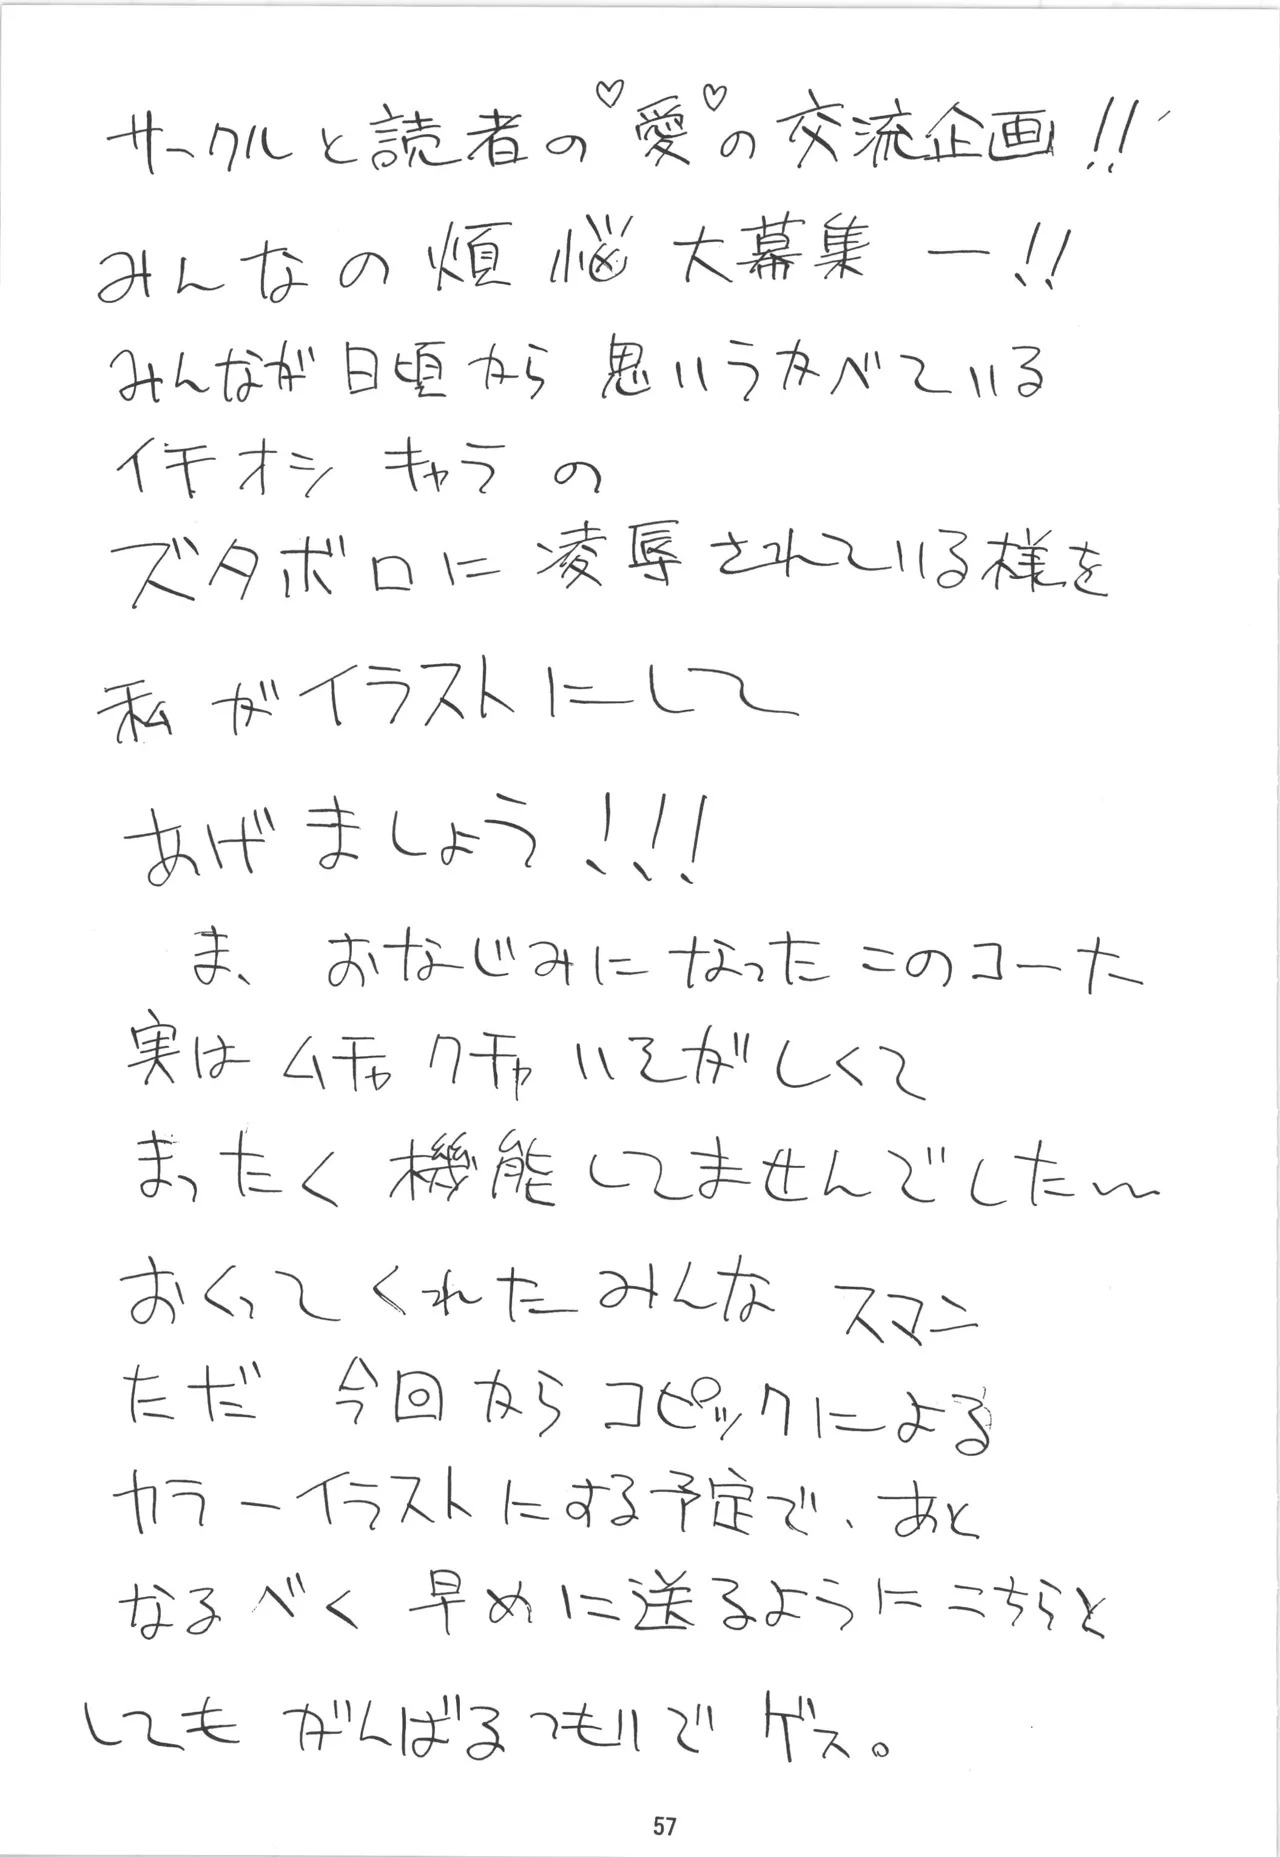 サークルと読者の♡愛♡の交流企画!!
みんなの煩悩大募集ー!!
みんなが日頃から思いうかべている
イチオシキャラの
ズタボロに凌辱されている様を
私がイラストにして
あげましょう!!!
ま、おなじみになったこのコーナ
実はムチャクチャいそがしくて
まったく機能してませんでした〜
おくってくれたみんなスマン
ただ今回からコピックによる
カラーイラストにする予定で、あと
なるべく早めに送るようにこちらと
してもがんばるつもりでゲス。
57